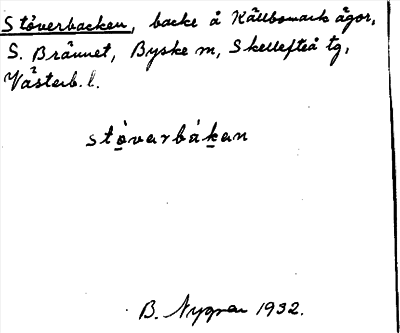 Stöverbacken, backe å Källbomark ägor,
S. Brännet, Byske sn, Skellefteå tg,
Västerb. l.
stòvarbákan
B. Nygren 1932.